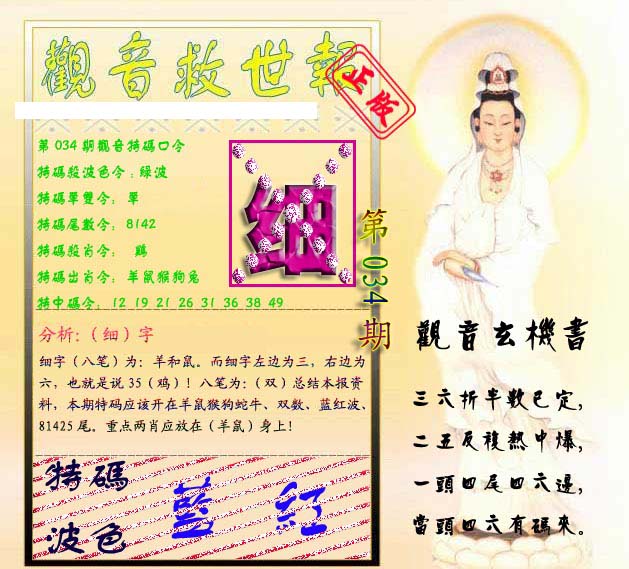 觀音救世報
正版
第 034 期觀音特碼口令
特碼殺波色令：綠波
特碼單雙令： 單
特碼尾數令： 8142
特碼殺肖令： 鷄
特碼出肖令： 羊鼠猴狗兔
特中碼令： 12 19 21 26 31 36 38 49
细
第 034 期
分析:（细）字
细字（八笔）为：羊和鼠。而细字左边为三，右边为
六，也就是说 35（鸡）！八笔为:（双）总结本报资
料，本期特码应该开在羊鼠猴狗蛇牛、双数、蓝红波、
81425 尾。重点两肖应放在（羊鼠）身上！
特碼
波色
藍 红
觀音玄機書
三六折半數已定，
二五反複熱中爆，
一頭四尾四六邊，
當頭四六有碼來。